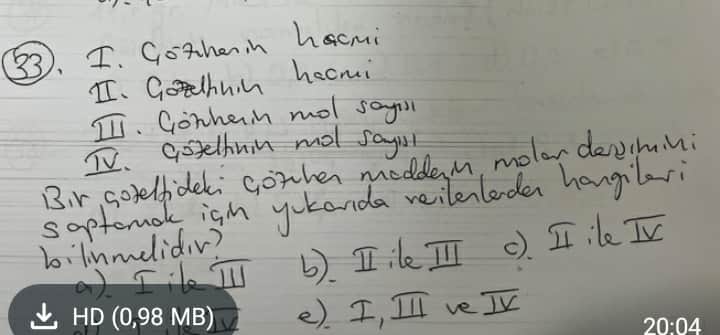 33. I. Çözünenin hacmi
II. Çözeltinin hacmi
III. Çözünenin mol sayısı
IV. Çözeltinin mol sayısı
Bir çözeltideki çözünen maddenin molar derişimini
saptamak için yukarıda verilenlerden hangileri
bilinmelidir?
a). I ile III b). II ile III c). II ile IV
IV e). I, III ve IV
HD (0,98 MB)
20:04